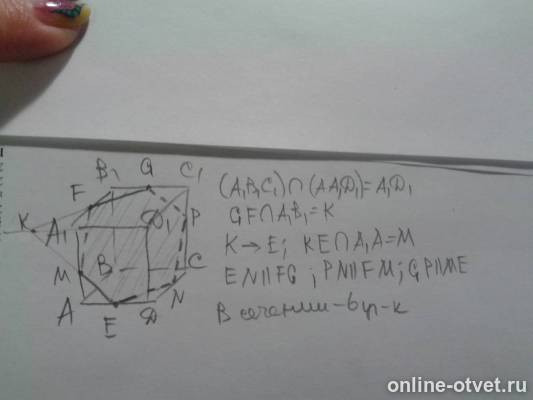 B₁ G C₁
F
K A₁ D₁ P
M B C
A E D N
(A₁B₁C₁)∩(AA₁D₁)=A₁D₁
GF∩A₁B₁=K
K→E; KE∩A₁A=M
EN||FG ; PN||FM; GP||ME
В сечении-6уг-к
online-otvet.ru